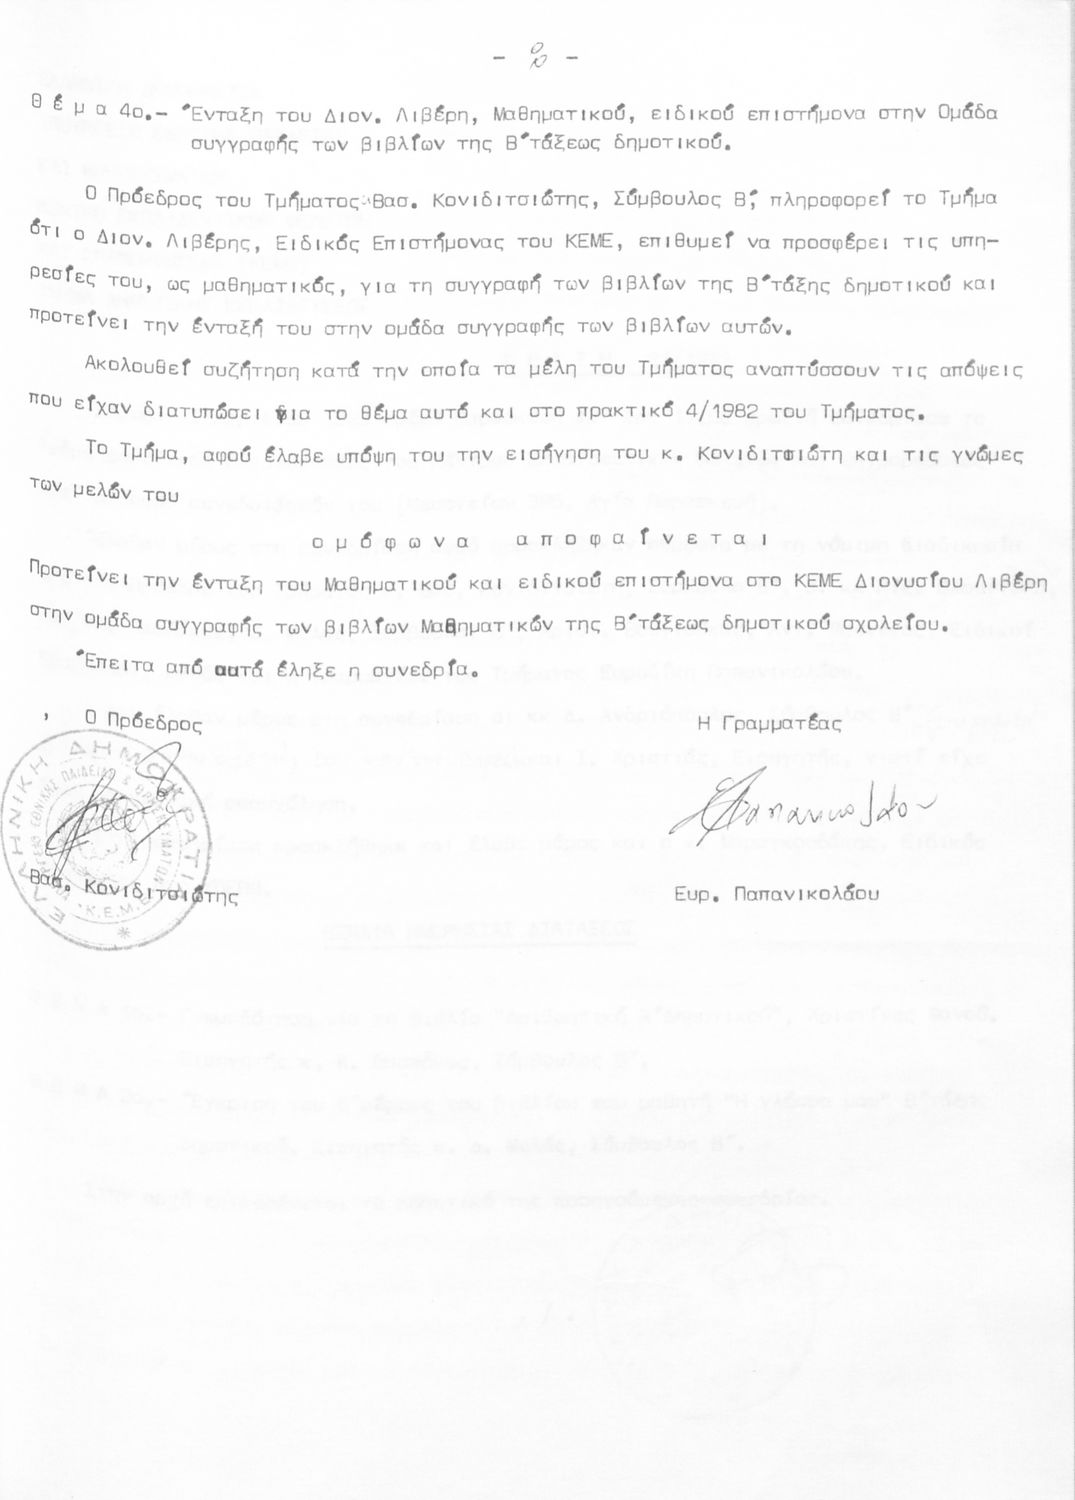 Θ έ μ α 4ο.- Ένταξη του Διον. Λιβέρη, Μαθηματικού, ειδικού επιστήμονα στην Ομάδα
συγγραφής των βιβλίων της Β΄τάξεως δημοτικού.
Ο Πρόεδρος του Τμήματος Βασ. Κονιδιτσιώτης, Σύμβουλος Β΄, πληροφορεί το Τμήμα
ότι ο Διον. Λιβέρης, Ειδικός Επιστήμονας του ΚΕΜΕ, επιθυμεί να προσφέρει τις υπη-
ρεσίες του, ως μαθηματικός, για τη συγγραφή των βιβλίων της Β΄τάξης δημοτικού και
προτείνει την ένταξή του στην ομάδα συγγραφής των βιβλίων αυτών.
Ακολουθεί συζήτηση κατά την οποία τα μέλη του Τμήματος αναπτύσσουν τις απόψεις
που είχαν διατυπώσει για το θέμα αυτό και στο πρακτικό 4/1982 του Τμήματος.
Το Τμήμα, αφού έλαβε υπόψη του την εισήγηση του κ. Κονιδιτσιώτη και τις γνώμες
των μελών του
ο μ ό φ ω ν α α π ο φ α ί ν ε τ α ι
Προτείνει την ένταξη του Μαθηματικού και ειδικού επιστήμονα στο ΚΕΜΕ Διονυσίου Λιβέρη
στην ομάδα συγγραφής των βιβλίων Μαθηματικών της Β΄τάξεως δημοτικού σχολείου.
Έπειτα από αυτά έληξε η συνεδρία.
Ο Πρόεδρος Η Γραμματέας
ΕΛΛΗΝΙΚΗ ΔΗΜΟΚΡΑΤΙΑ
Κ.Ε.Μ.Ε.
Παπανικολάου
Βασ. Κονιδιτσιώτης Ευρ. Παπανικολάου